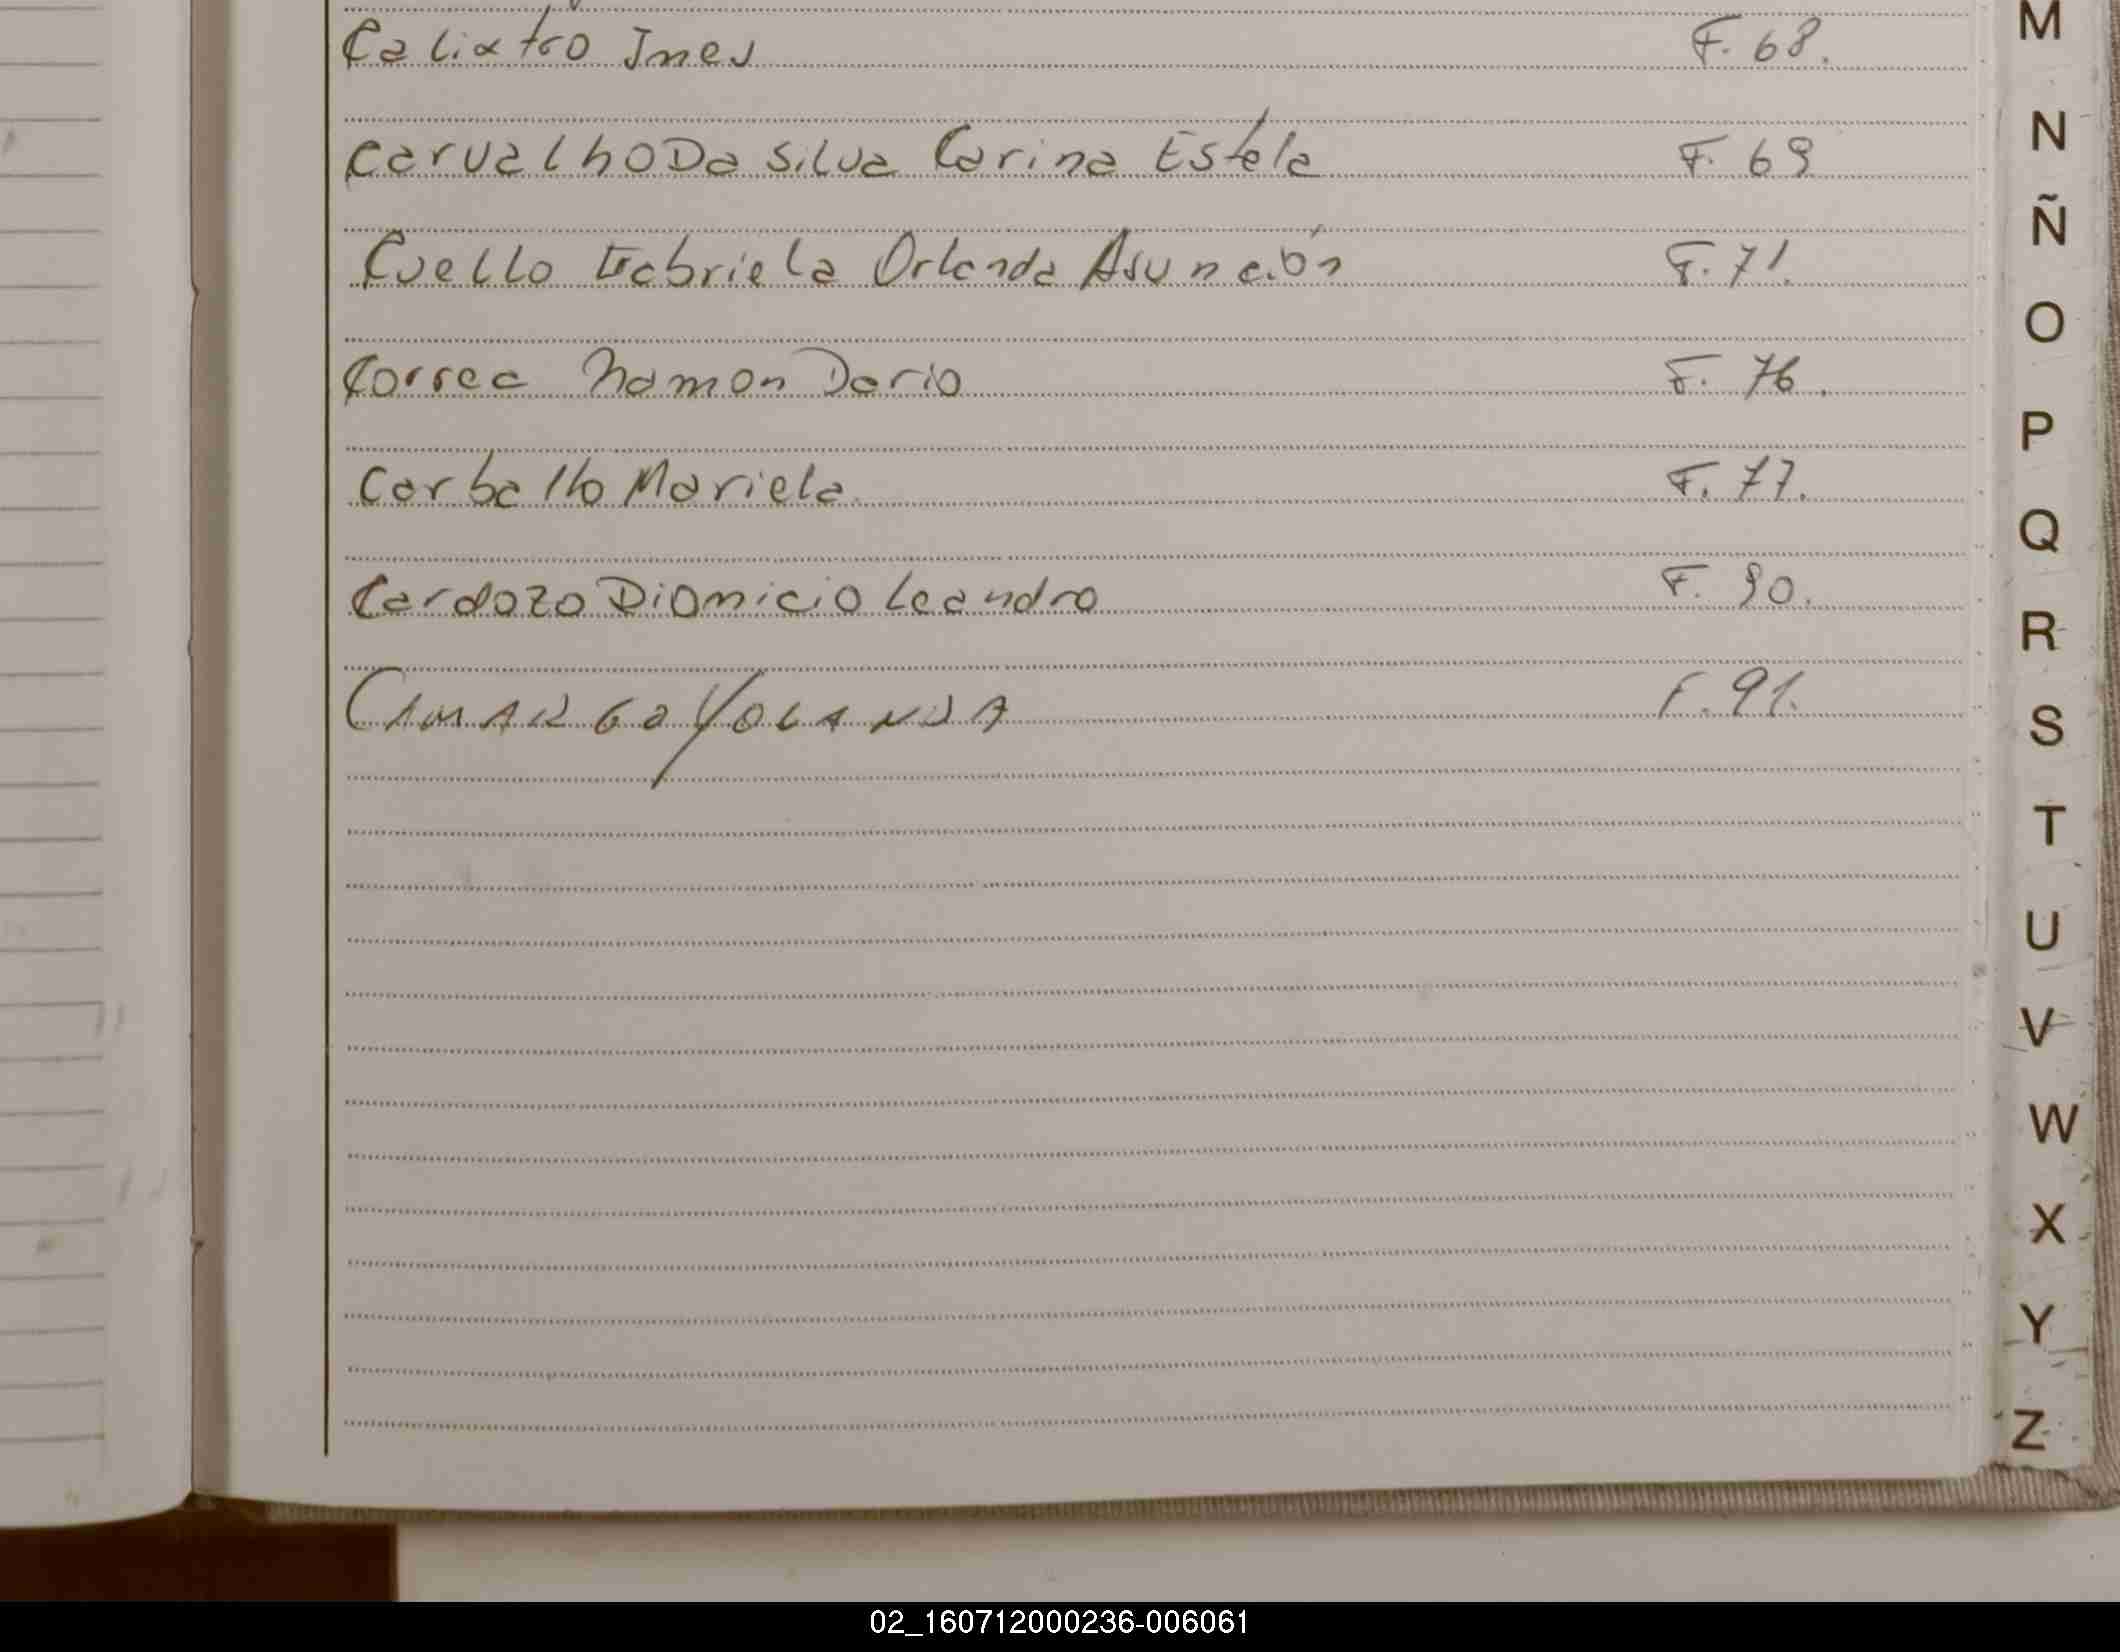 Calixtro Ines F. 68.
Carvalho Da Silva Carina Estela F. 69
Cuello Gabriela Orlanda Asunción F. 71.
Correa Ramon Dario F. 76.
Carballo Mariela F. 77.
Cardozo Dionicio Leandro F. 90.
CAMARGO YOLANDA F. 91.
M
N
Ñ
O
P
Q
R
S
T
U
V
W
X
Y
Z
02_160712000236-006061